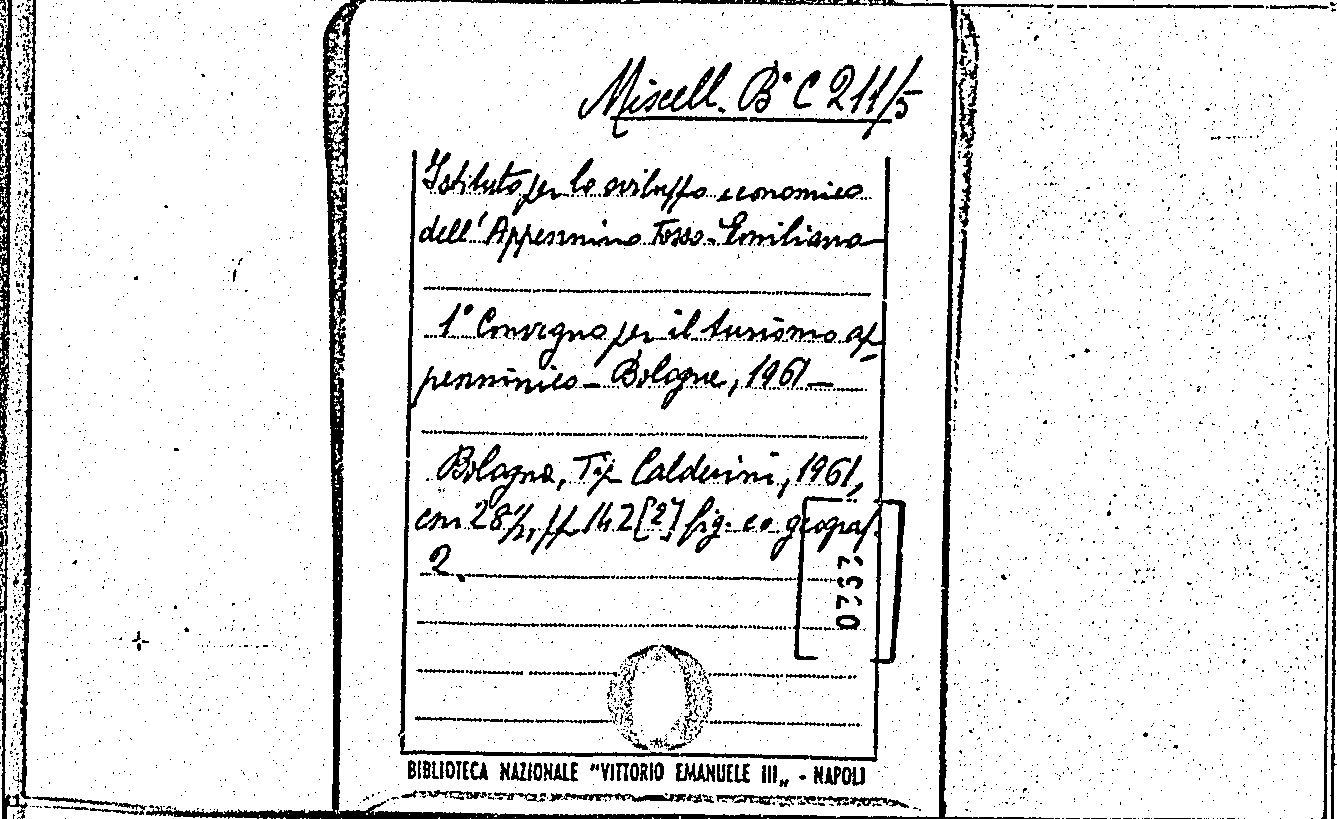 Miscell. B° C 211/5
Istituto per lo sviluppo economico
dell'Appennino Tosco-Emiliano
1° Convegno per il turismo ap-
penninico – Bologna, 1961 –
Bologna, Tip. Calderini, 1961,
cm 28½, pp. 142 [2] fig. e
2.
BIBLIOTECA NAZIONALE "VITTORIO EMANUELE III„ - NAPOLI